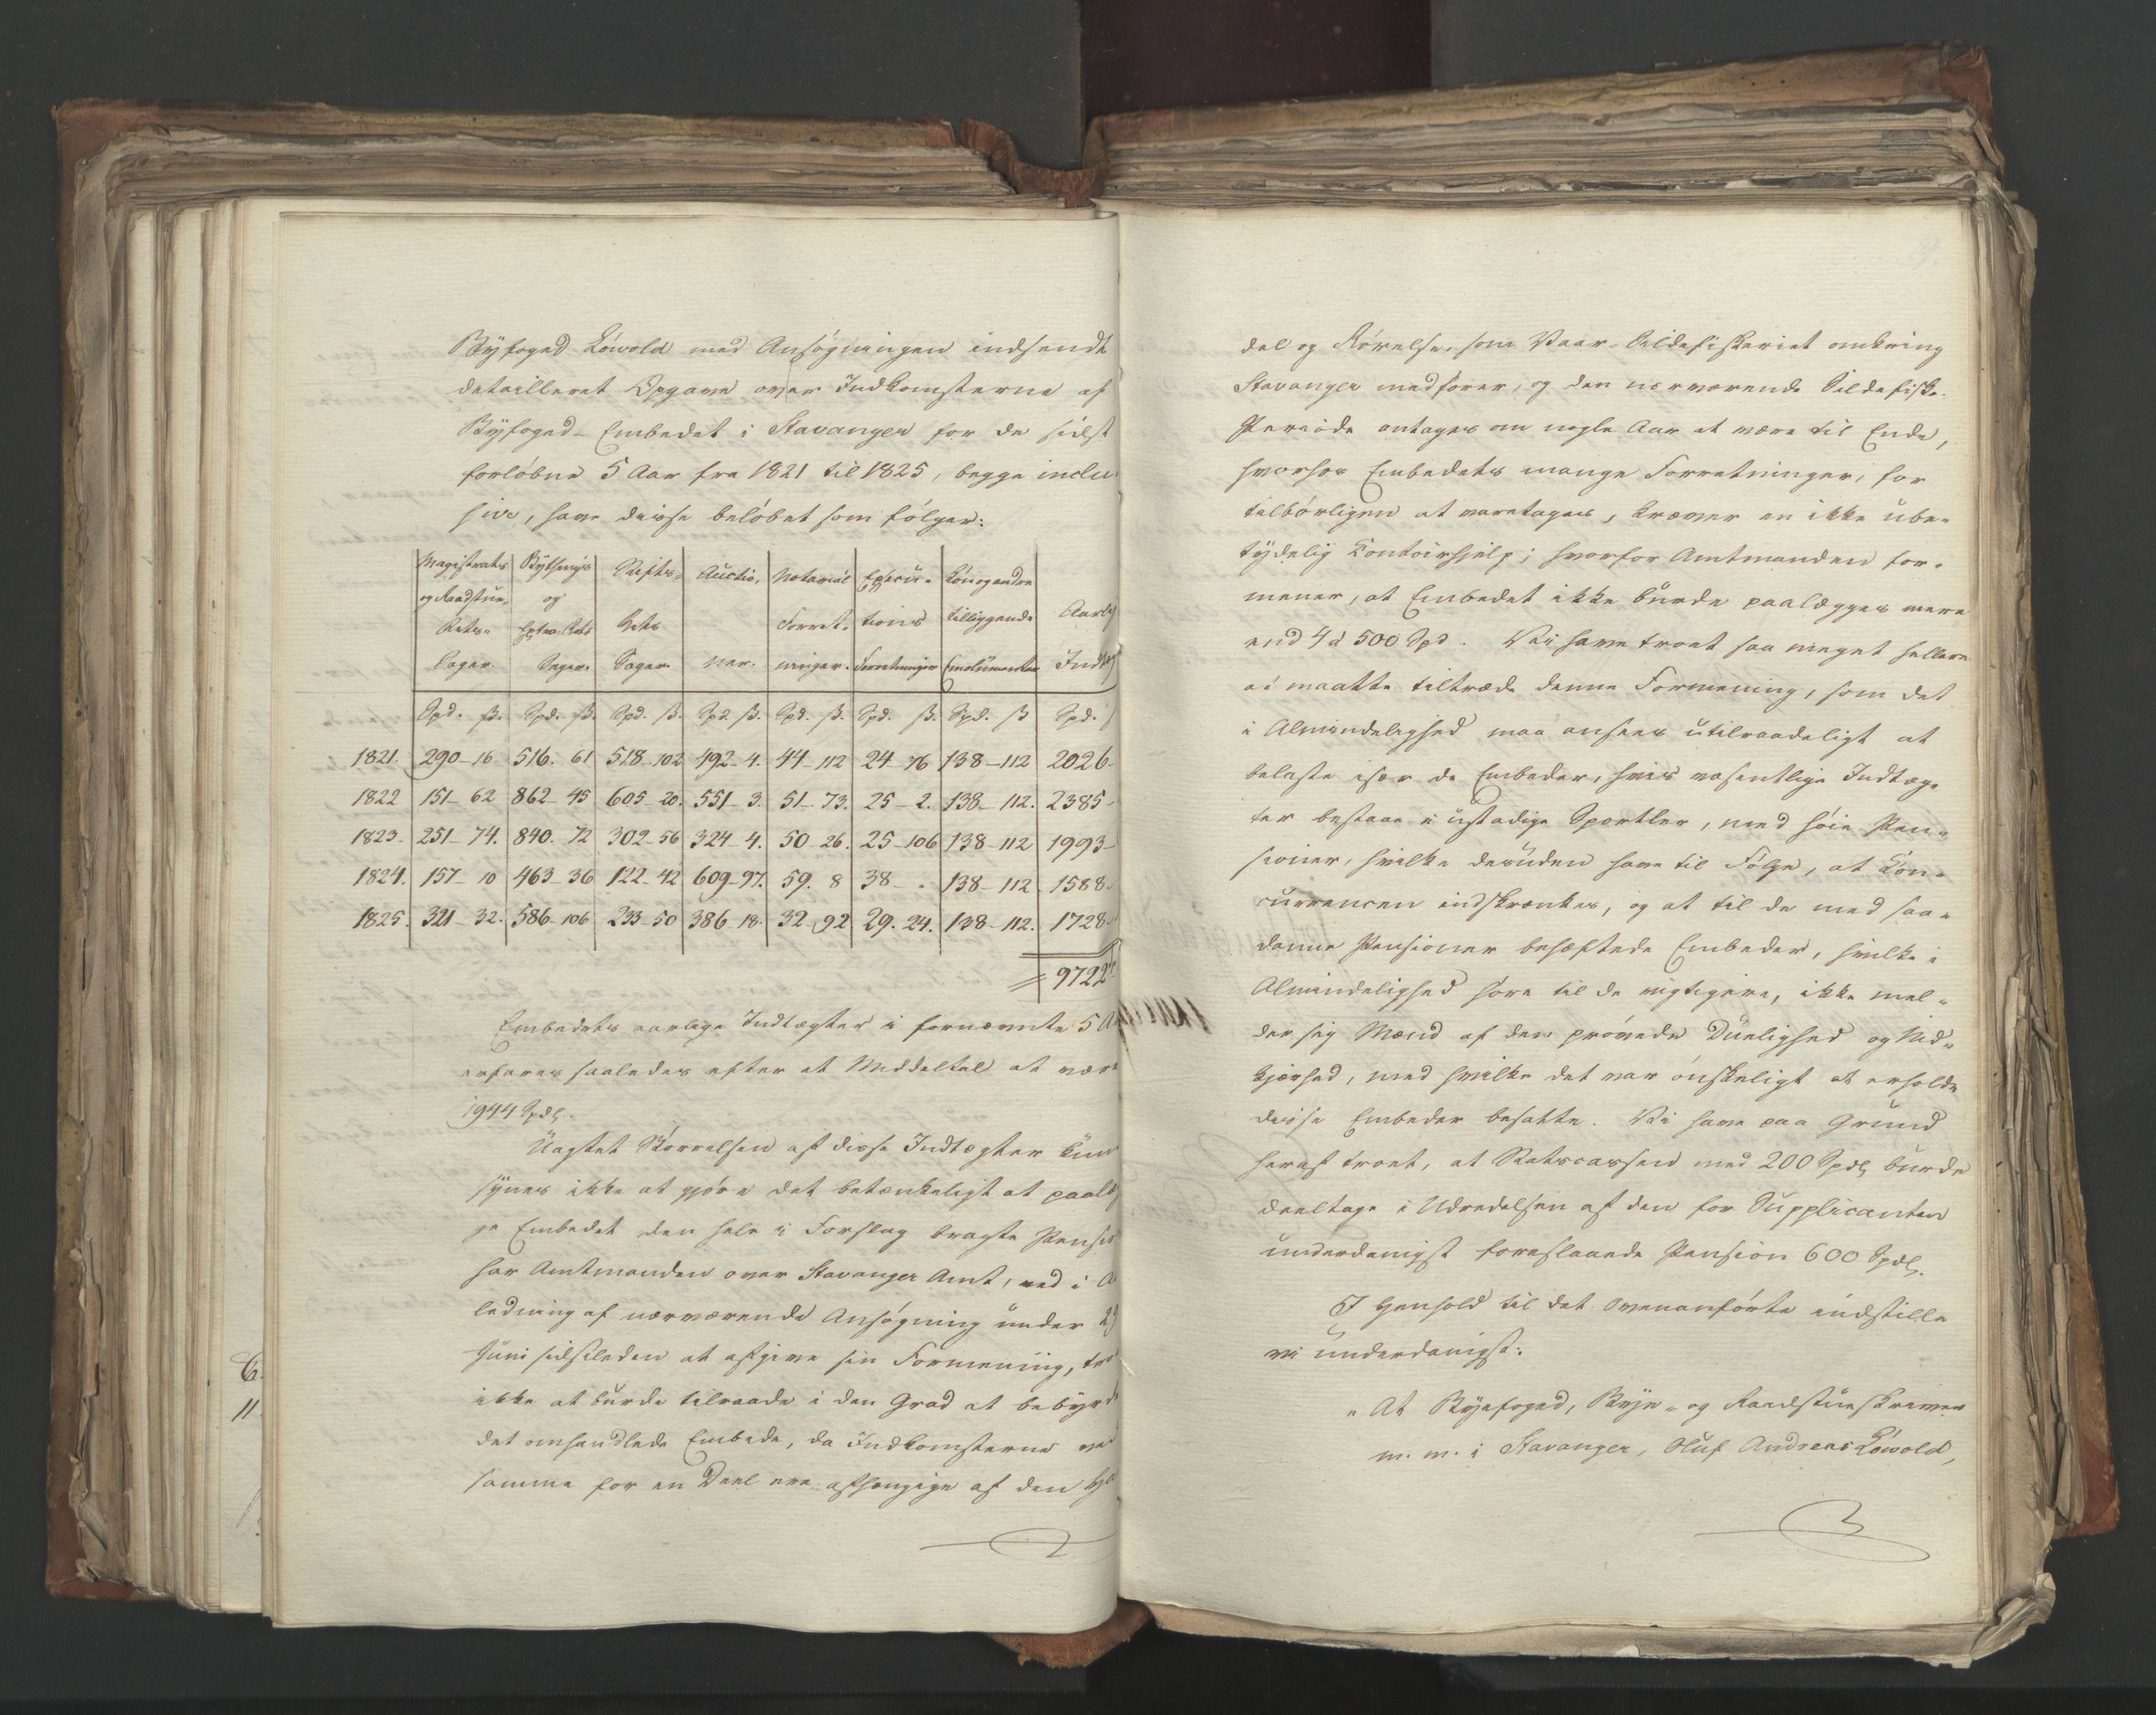 Byfoged Löwold med Ansøgningen indsendt
detailleret Opgave over Indkomsterne af
Byfoged-Embedet i Stavanger for de sidst
forløbne 5 Aar fra 1821 til 1825, begge inclu
sive, have disse beløbet som følger:
Magistrats Bythings Skifts- Auctio, Notarial Execu- Løn og andre
og Raadstue, og Forret- tions tilliggende Aarl
Rets- Extra-Rets Rets
Sager. Sager. Sager. ner. ninger. Forretninger Emolumenter Indt
Spd. ß. Spd. ß. Spd. ß. Spd. ß. Spd. ß. Spd. ß. Spd. ß Spd.
1821. 290-16 516. 61 518-102 492-4. 44-112 24-76 138-112 2026-
1822 151-62 862-45 605-20. 551-3. 51-73. 25-2. 138-112. 2385-
1823- 251-74. 840. 72 302-56 324-4. 50-26. 25-106 138-112 1993-
1824. 157-10 463-36 122-42 609-97. 59. 8 38- . 138-112. 1588-
1825. 321-32. 586-106 233-50 386-18. 32-92 29. 24. 138-112. 1728-
9722
Embedets aarlige Indtægter i fornævnte 5 A
erfares saaledes efter et Middeltal at være
1944 Spd.
Uagtet Størrelsen af disse Indtægter kun
synes ikke at gjøre det betænkeligt at paalæg
ge Embedet den hele i Forslag bragte Pensi
har Amtmanden over Stavanger Amt, ved i A
ledning af nærværende Ansøgning under 29
Juni sidstleden at afgive sin Formening, tro
ikke at burde tilraade i den Grad at bebyrde
det omhandlede Embede, da Indkomsterne ved
samme for en Deel ere afhængige af den Ha
del og Rørelse, som Vaar-Sildefiskeriet omkring
Stavanger medfører, og den nærværende Sildefiske-
Periode antages om nogle Aar at være til Ende,
hvorhos Embedets mange Forretninger, for
tilbørligen at varetages, kræver en ikke ube-
tydelig Contoirhjelp; hvorfor Amtmanden for-
mener, at Embedet ikke burde paalægges mere
end 4 à 500 Spd. Vii have troet saa meget hellere
at maatte tiltræde denne Formening, som det
i Almindelighed maa ansees utilraadeligt at
belaste især de Embeder, hvis væsentlige Indtæg-
ter bestaae i ustadige Sportler, med høie Pen-
sioner, hvilke desuden have til Følge, at Con-
currencen indskrænkes, og at til de med saa-
danne Pensioner behæftede Embeder, hvilke i
Almindelighed høre til de vigtigere, ikke mel-
der sig Mænd af den prøvede Duelighed og Nid-
kjærhed, med hvilke det var ønskeligt at erholde
disse Embeder besatte. Vi have paa Grund
heraf troet, at Statscassen med 200 Spd. burde
deeltage i Udredelsen af den for Supplicanten
underdanigst foreslaaede Pension 600 Spd.
I Henhold til det Ovenanførte indstille
vi underdanigst:
"At Byefoged, Bye- og Raadstueskriver
m. m. i Stavanger, Oluf Andreas Löwold,